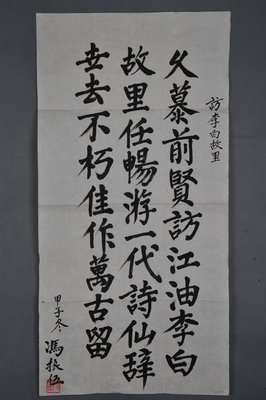 訪李白故里
久慕前賢訪江油李白
故里任暢游一代詩仙辭
世去不朽佳作萬古留
甲子冬 馮振伍